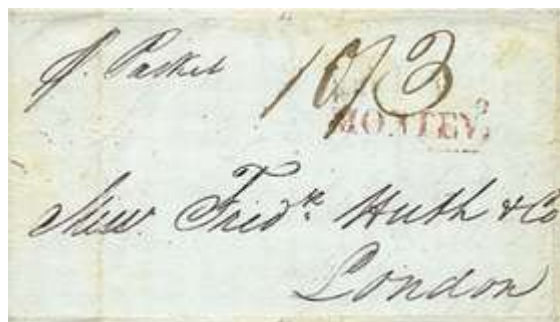 p. Packet
10/3
MONTEV.
Messrs. Fredk. Huth & Co
London